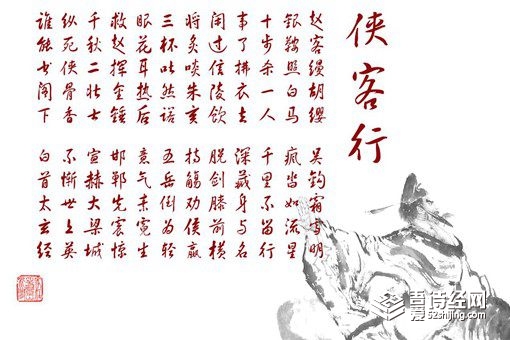 侠客行
赵客缦胡缨
吴钩霜雪明
银鞍照白马
疯沓如流星
十步杀一人
千里不留行
事了拂衣去
深藏身与名
闲过信陵饮
脱剑膝前横
将炙啖朱亥
持觞劝侯嬴
三杯吐然诺
五岳倒为轻
眼花耳热后
意气素霓生
救赵挥金锤
邯郸先震惊
千秋二壮士
宣赫大梁城
纵死侠骨香
不惭世上英
谁能书阁下
白首太玄经
吾爱诗经网
52shijing.com